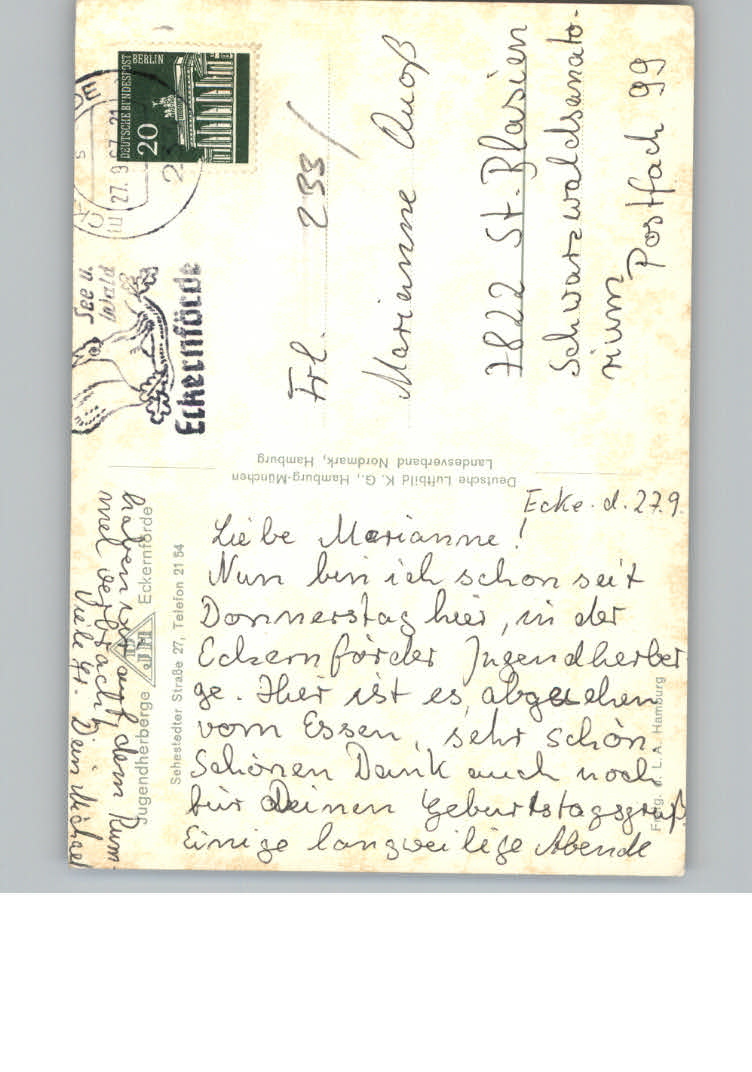 DEUTSCHE BUNDESPOST BERLIN
20
27. 9. 67-21
See u.
Wald
Eckernförde
Frl. 233/
Marianne
7822 St. Blasien
Schwarzwaldsanato-
rium Postfach 99
Deutsche Luftbild K. G., Hamburg-München
Landesverband Nordmark, Hamburg
Jugendherberge DJH Eckernförde
Sehestedter Straße 27, Telefon 21 54
L.A. Hamburg
Ecke. d. 27.9.
Liebe Marianne!
Nun bin ich schon seit
Donnerstag hier, in der
Eckernförder Jugendherber
ge. Hier ist es, abgesehen
vom Essen, sehr schön.
Schönen Dank auch noch
für Deinen Geburtstagsgruß.
Einige langweilige Abende
haben wir auf dem Rum-
mel verbracht.
Viele Gr. Dein Michael